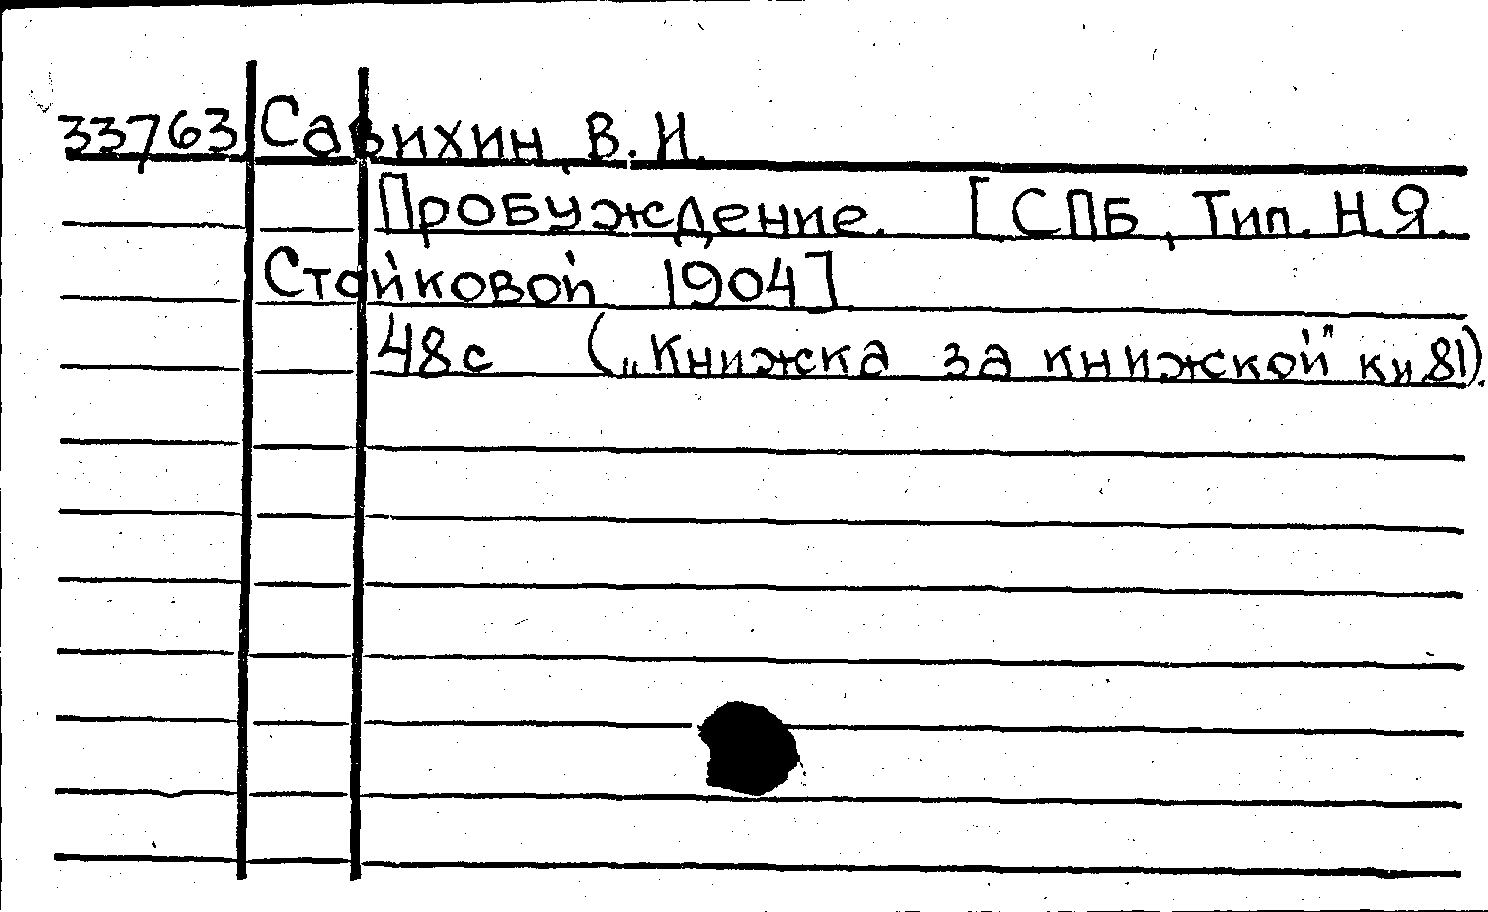 33763 Савихин В. И.
Пробуждение. [СПБ, Тип. Н.Я.
Стойковой 1904]
48с („Книжка за книжкой" кн 81).